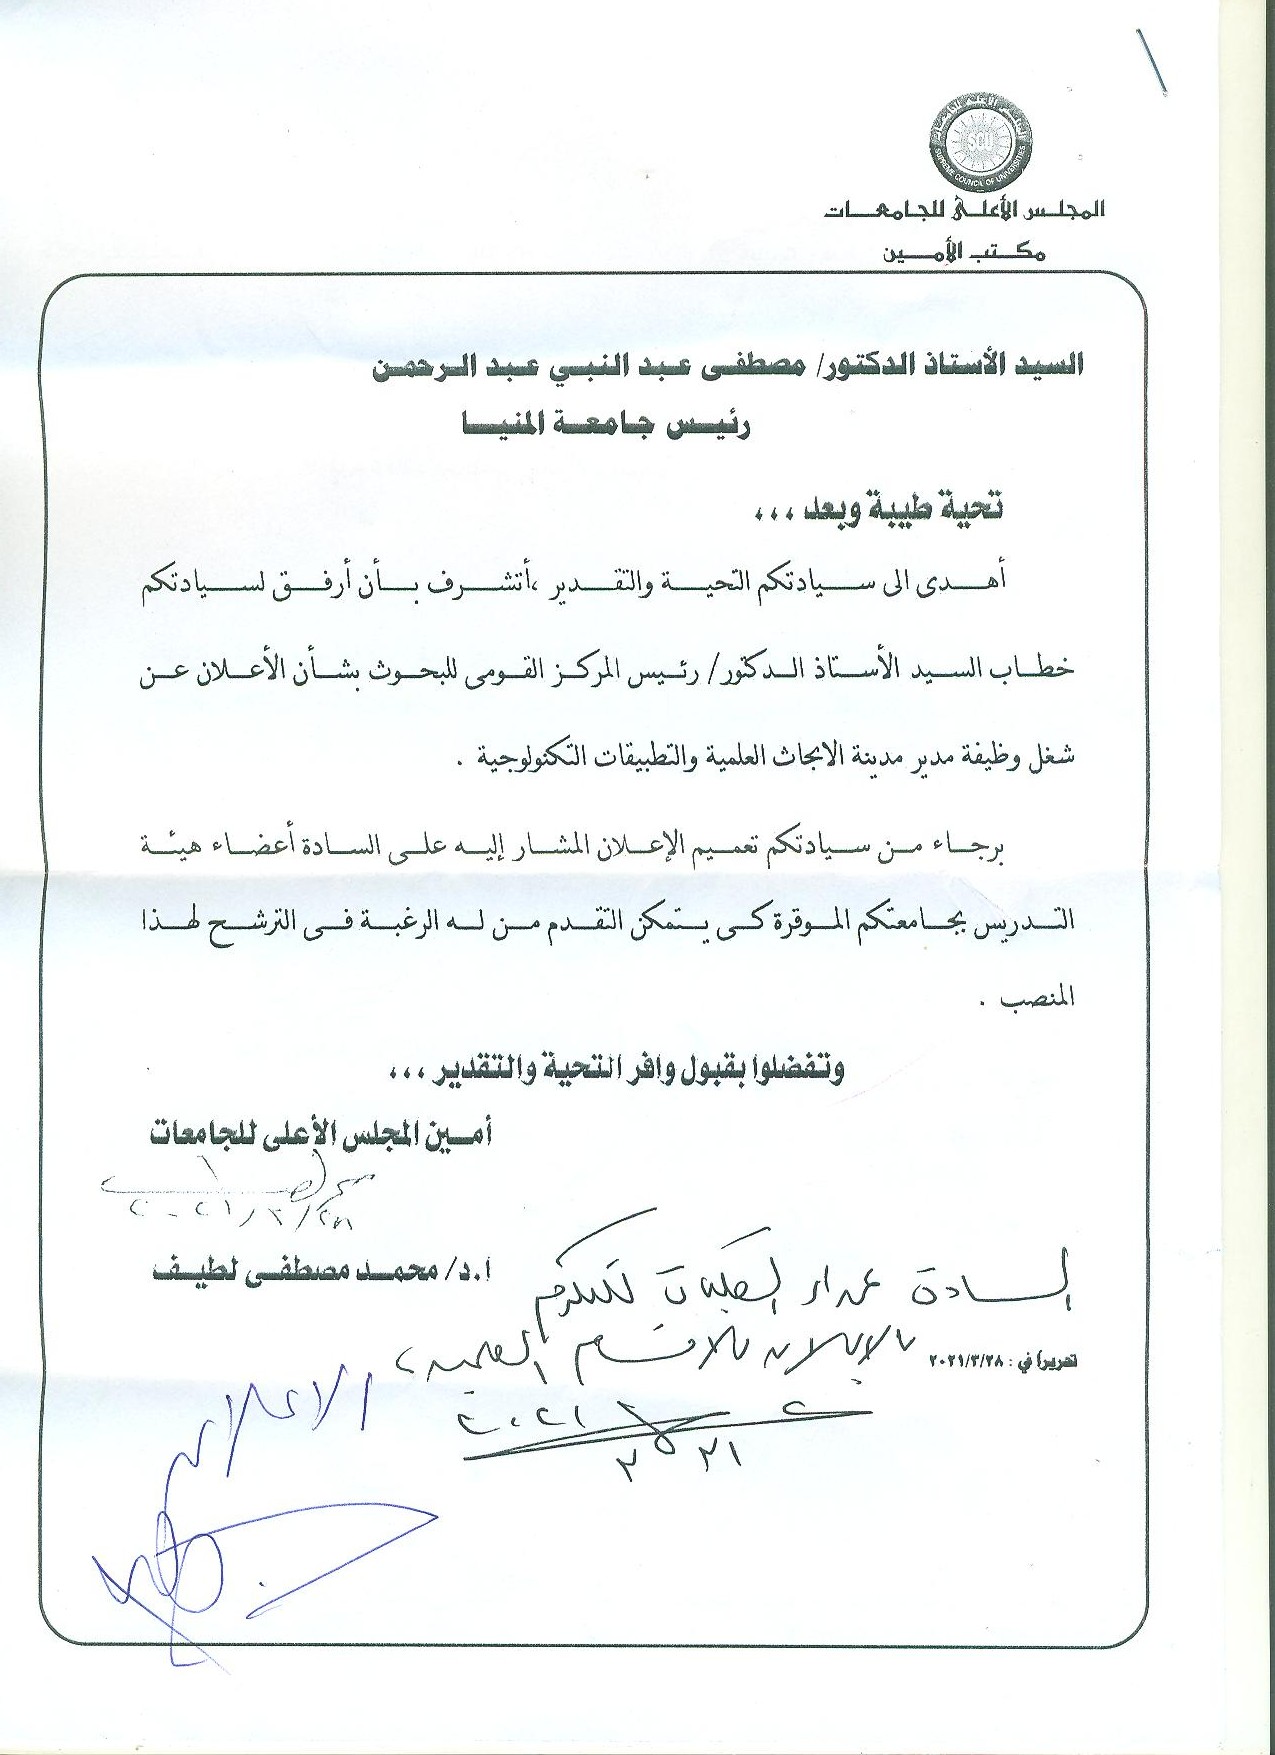 SUPREME COUNCIL OF UNIVERSITIES
SCU
المجلس الأعلى للجامعات
مكتب الأمين
السيد الأستاذ الدكتور/ مصطفى عبد النبي عبد الرحمن
رئيس جامعة المنيا
تحية طيبة وبعد ،،،
أهدى الى سيادتكم التحية والتقدير ،أتشرف بأن أرفق لسيادتكم
خطاب السيد الأستاذ الدكتور/ رئيس المركز القومى للبحوث بشأن الأعلان عن
شغل وظيفة مدير مدينة الابحاث العلمية والتطبيقات التكنولوجية .
برجاء من سيادتكم تعميم الإعلان المشار إليه على السادة أعضاء هيئة
التدريس بجامعتكم الموقرة كى يتمكن التقدم من له الرغبة فى الترشح لهذا
المنصب .
وتفضلوا بقبول وافر التحية والتقدير ،،،
أمين المجلس الأعلى للجامعات
٢٠٢١/٣/٢٨
أ.د/ محمد مصطفى لطيف
السادة عمداء الكليات للتكرم
بالإعلان للأقسام العلمية
تحريراً في : ٢٠٢١/٣/٢٨
الاعلان